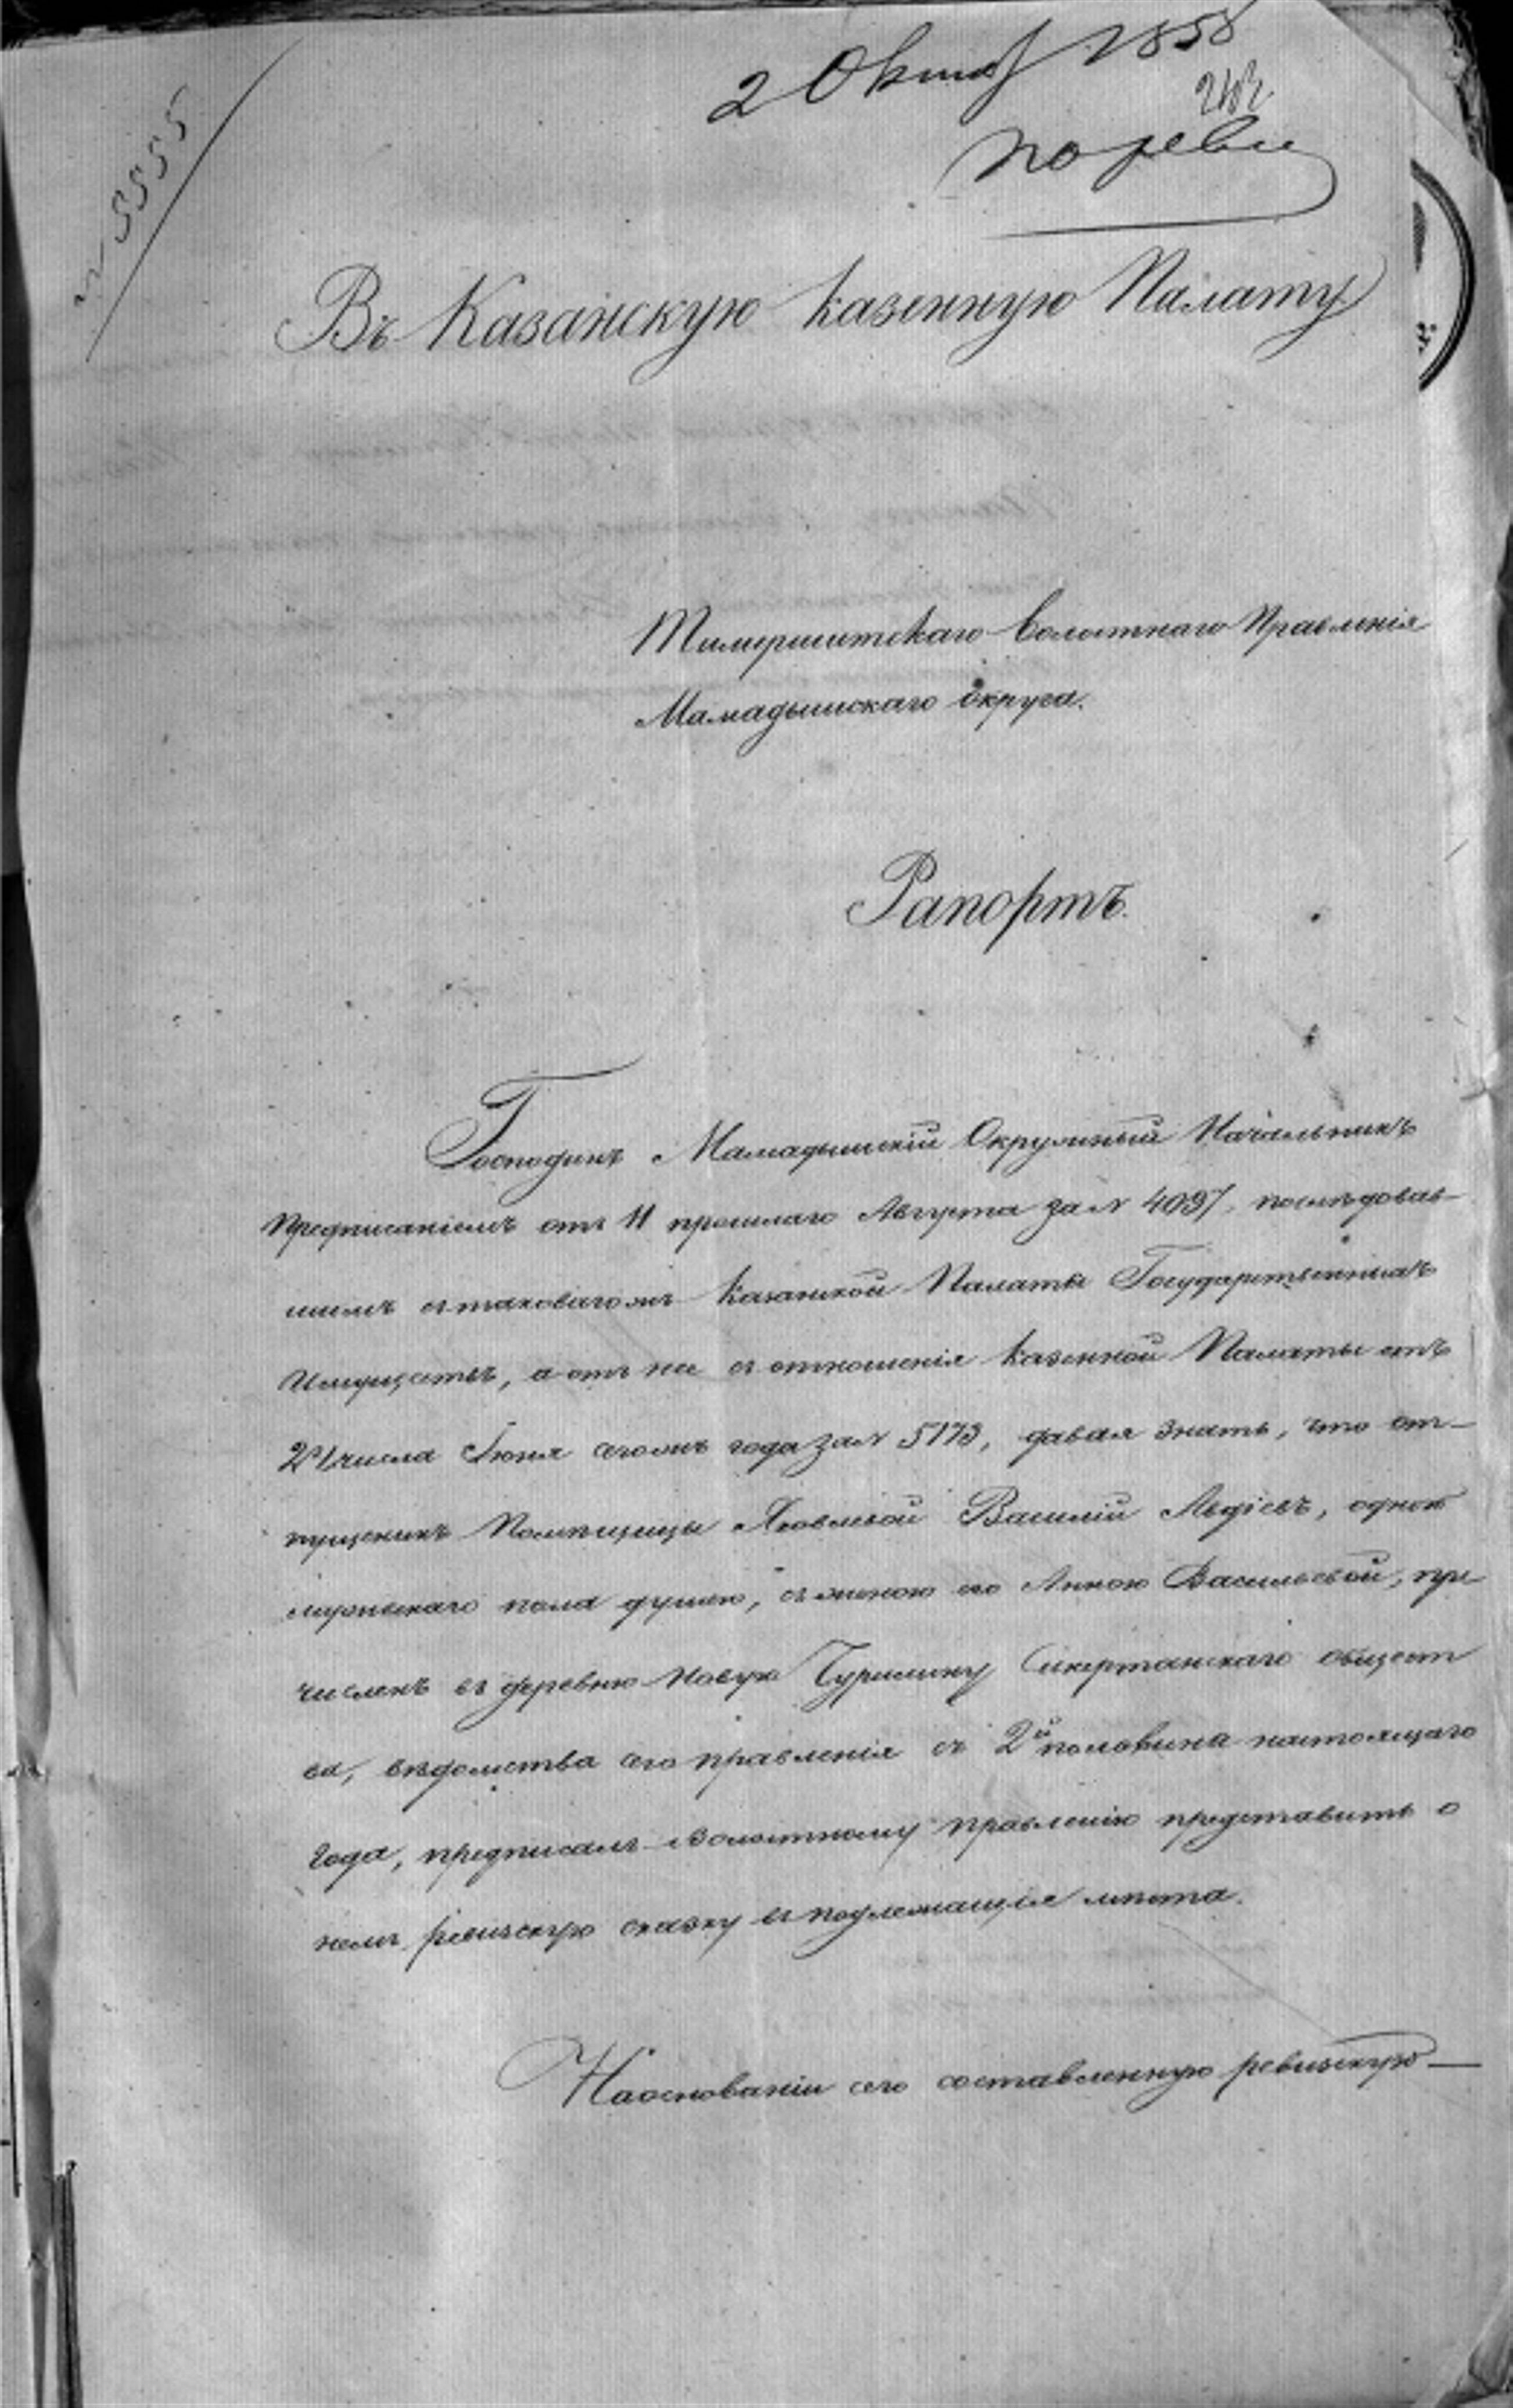 2 Октяб 1858
по реви
№ 5555
Въ Казанскую казенную Палату
Волостнаго Правленія
Мамадышскаго Округа.
Рапортъ.
Господинъ Мамадышскій Окружный Начальникъ
предписаніемъ отъ 11 прошлаго Августа за № 4097, послѣдовав-
шимъ съ таковагожъ Казанской Палаты Государственныхъ
Имуществъ, а отъ нее съ отношенія Казенной Палаты отъ
числа Іюня сегожъ года за № 5173, давая знать, что от-
пущеникъ Помѣщицы Василій Авдіевъ, одной
мужескаго пола душею, съ женою его Анною Васильевой, при
численъ въ деревню Новую общест
ва, вѣдомства сего правленія съ 2й половина настоящаго
года, предписалъ Волостному правленію представить о
немъ ревизскую сказку въ подлежащія мѣста.
На основаніи сего составленную ревизскую